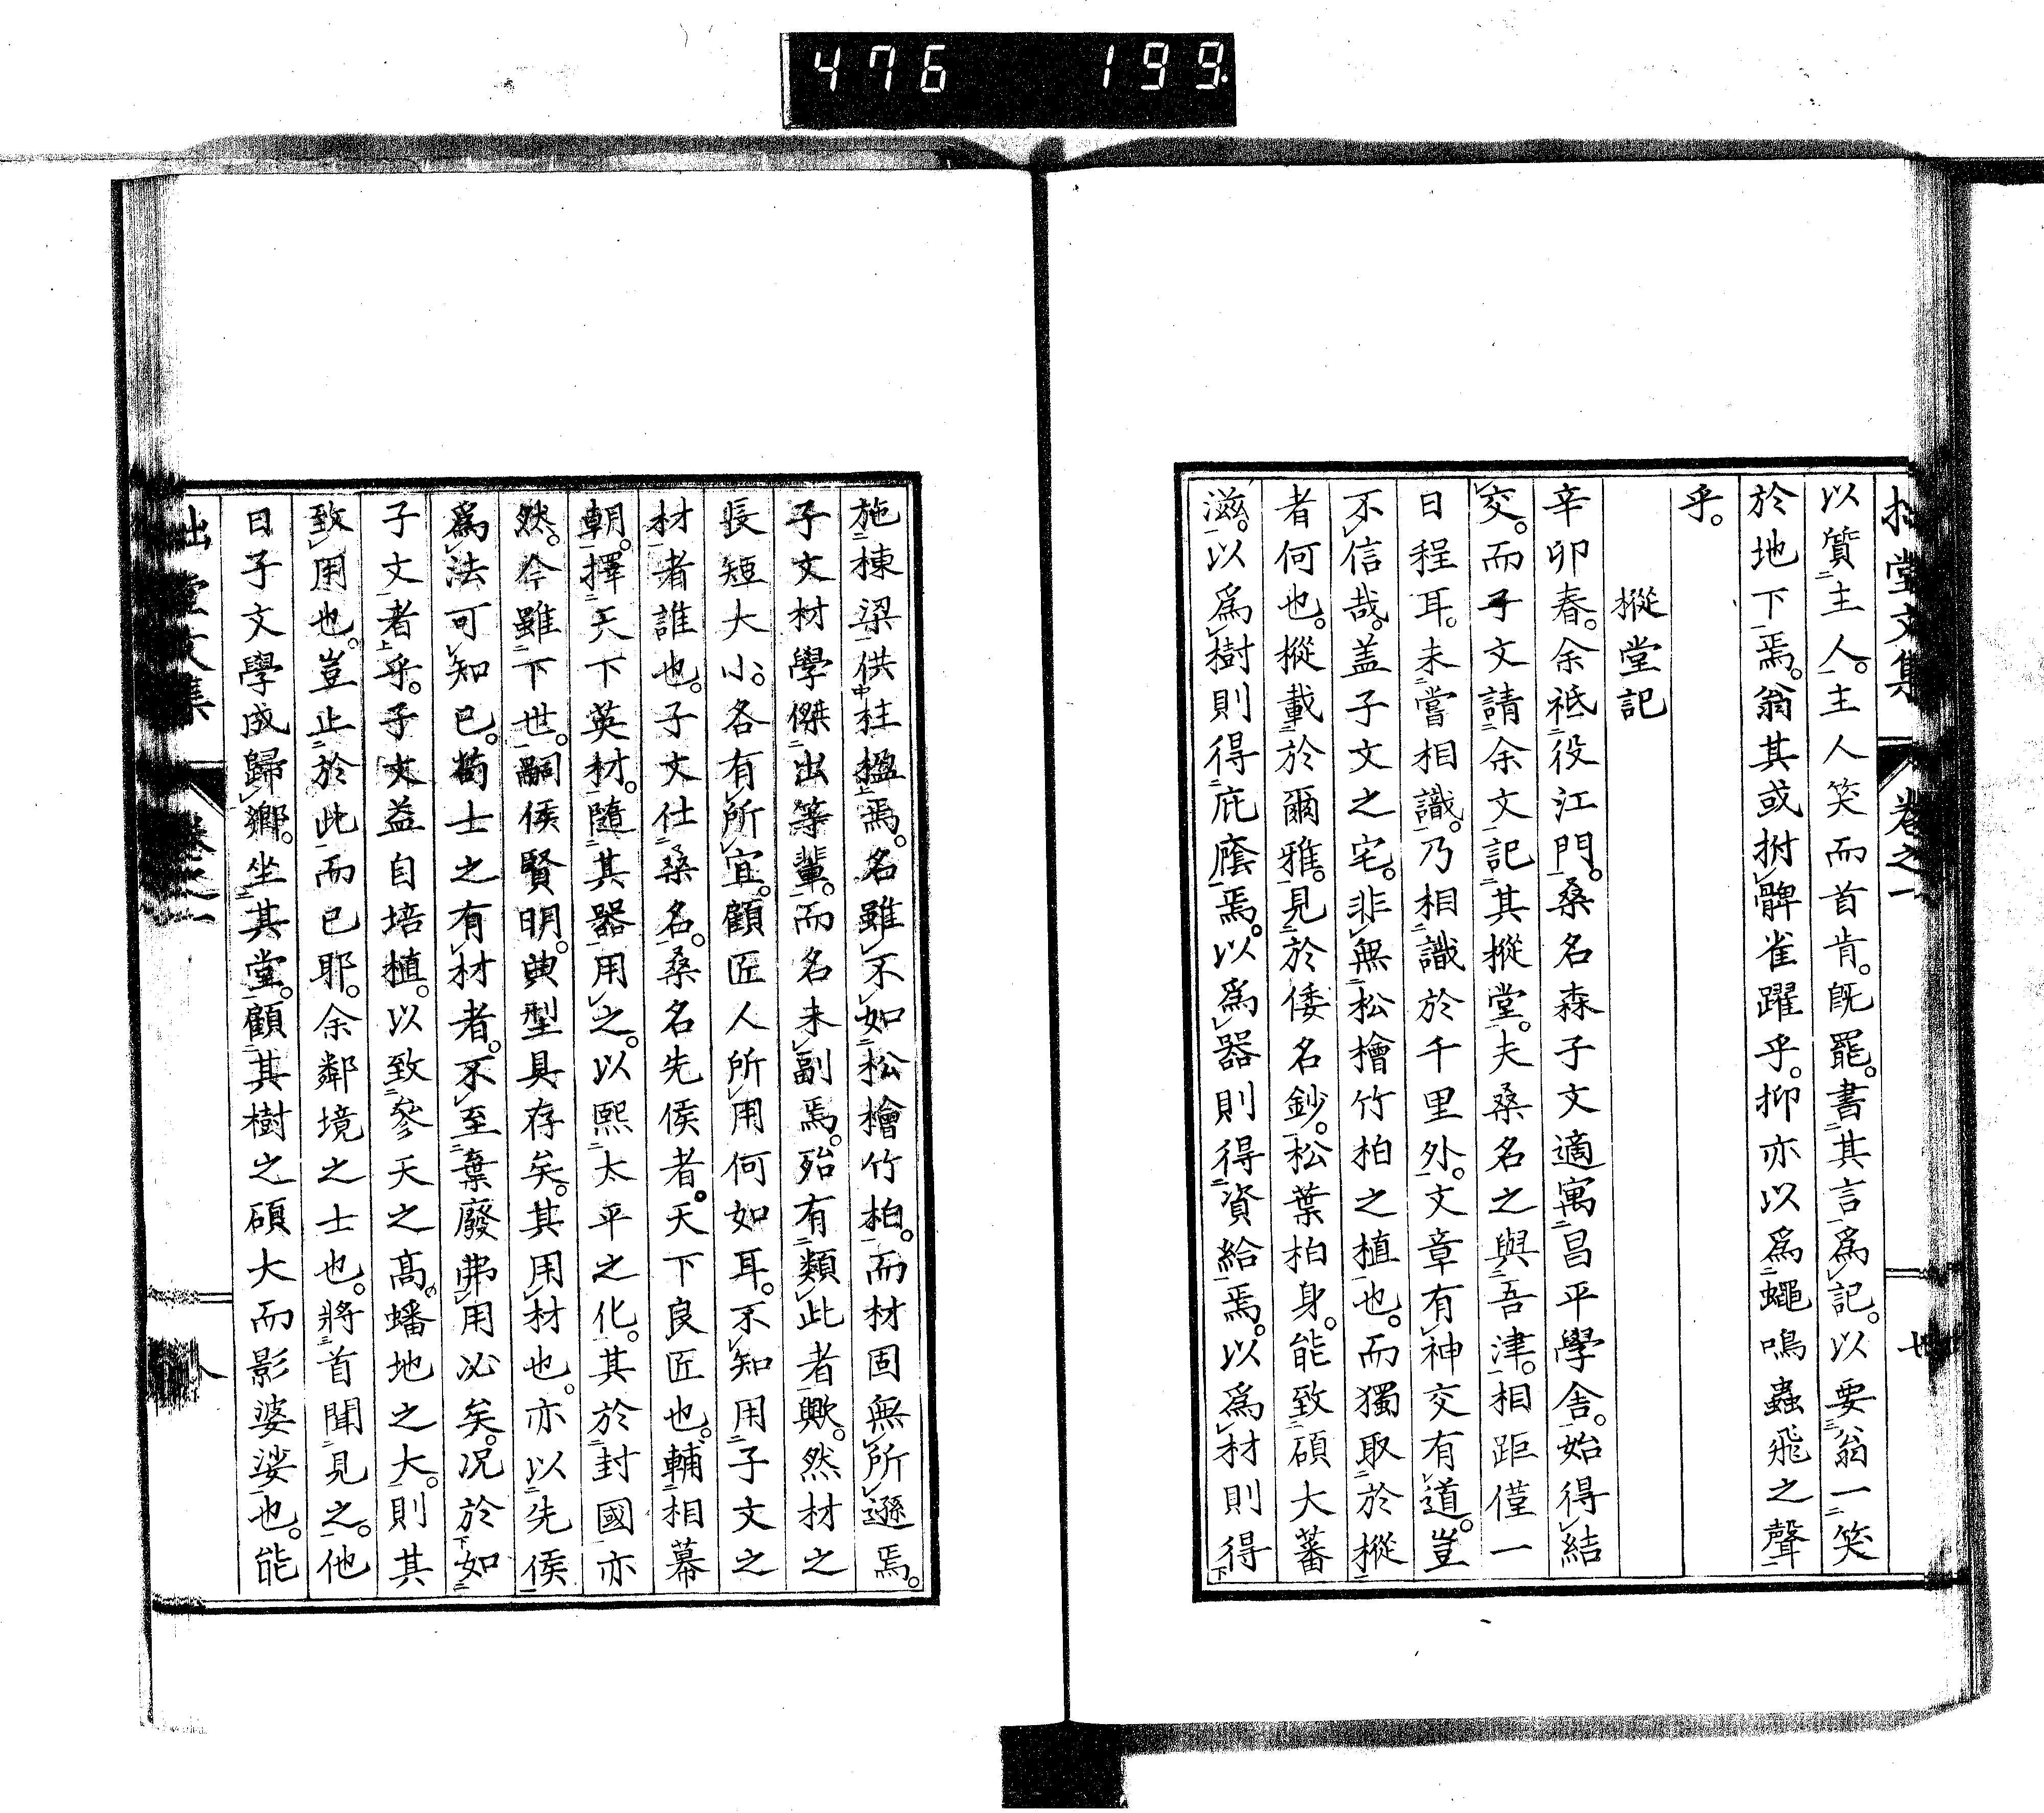 476 199
拙堂文集 卷之一 七
以質主人。主人笑而首肯。既罷。書其言爲記。以要翁一笑
於地下焉。翁其或拊髀雀躍乎。抑亦以爲蠅鳴蟲飛之聲
乎。
樅堂記
辛卯春。余祗役江門。桑名森子文適寓昌平學舍。始得結
交。而子文請余文記其樅堂。夫桑名之與吾津。相距僅一
日程耳。未嘗相識。乃相識於千里外。文章有神交有道。豈
不信哉。蓋子文之宅。非無松檜竹柏之植也。而獨取於樅
者何也。樅載於爾雅。見於倭名鈔。松葉柏身。能致碩大蕃
滋。以爲樹則得庇廕焉。以爲器則得資給焉。以爲材則得
施棟梁供柱楹焉。名雖不如松檜竹柏。而材固無所遜焉。
子文材學傑出等輩。而名未副焉。殆有類此者歟。然材之
長短大小。各有所宜。顧匠人所用何如耳。不知用子文之
材者誰也。子文仕桑名。桑名先侯者。天下良匠也。輔相幕
朝。擇天下英材。隨其器用之。以熙太平之化。其於封國亦
然。今雖下世。嗣侯賢明。典型具存矣。其用材也。亦以先侯
爲法可知已。苟士之有材者。不至棄廢弗用必矣。況於如
子文者乎。子文益自培植。以致參天之高。蟠地之大。則其
致用也。豈止於此而已耶。余鄰境之士也。將首聞見之。他
日子文學成歸鄉。坐其堂。顧其樹之碩大而影婆娑也。能
拙堂文集 卷之一 八